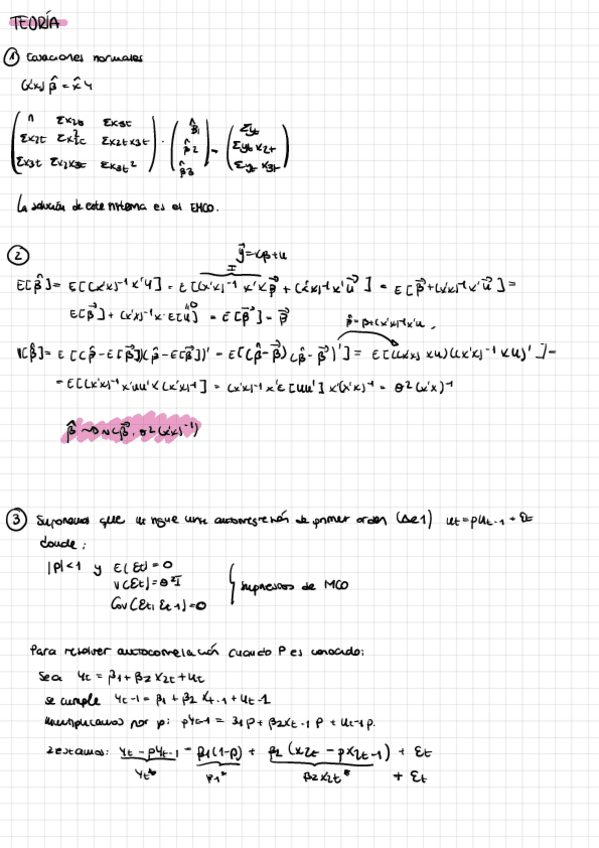 TEORÍA
① Ecuaciones normales
(x'x) β̂ = x̂ y
( n Σx2t Σx3t
Σx2t Σx²2t Σx2tx3t
Σx3t Σx2x3t Σx3t² ) · ( β̂1 β̂2 β̂3 ) = ( Σyt Σyt x2t Σyt x3t )
La solución de este sistema es el EMCO.
②
y⃗ = xβ + u
E[β̂] = E[(x'x)⁻¹ x'y] = E[(x'x)⁻¹ x'xβ⃗ + (x'x)⁻¹x'u⃗ ] = E[β⃗ + (x'x)⁻¹x'u⃗ ] =
E[β⃗] + (x'x)⁻¹x'·E[u] = E[β⃗] = β⃗
β̂ = β + (x'x)⁻¹x'u,
V[β̂] = E[(β̂ - E[β⃗])(β̂ - E[β⃗])' = E[(β̂ - β⃗)(β̂ - β⃗)'] = E[((x'x) xu)((x'x)⁻¹ xu)' ] =
= E[(x'x)⁻¹ x'uu'x(x'x)⁻¹] = (x'x)⁻¹ x'E[uu'] x(x'x)⁻¹ = σ²(x'x)⁻¹
β̂ ~ N(β⃗, σ²(x'x)⁻¹)
③ Suponemos que ut sigue una autorregresión de primer orden (AR1) ut = ρut-1 + Et
donde:
|ρ|<1 y E(Et) = 0
V(Et) = σ²I
Cov(Et, Et-1) = 0
supuestos de MCO
Para resolver autocorrelación cuando P es conocido:
Sea yt = β1 + β2 x2t + ut
se cumple yt-1 = β1 + β2 xt-1 + ut-1
Multiplicamos por ρ: ρyt-1 = β1ρ + β2xt-1 ρ + ut-1ρ.
restamos: yt - ρyt-1 = β1(1-ρ) + β2 (x2t - ρx2t-1) + Et
yt* β1* β2x2t* + Et